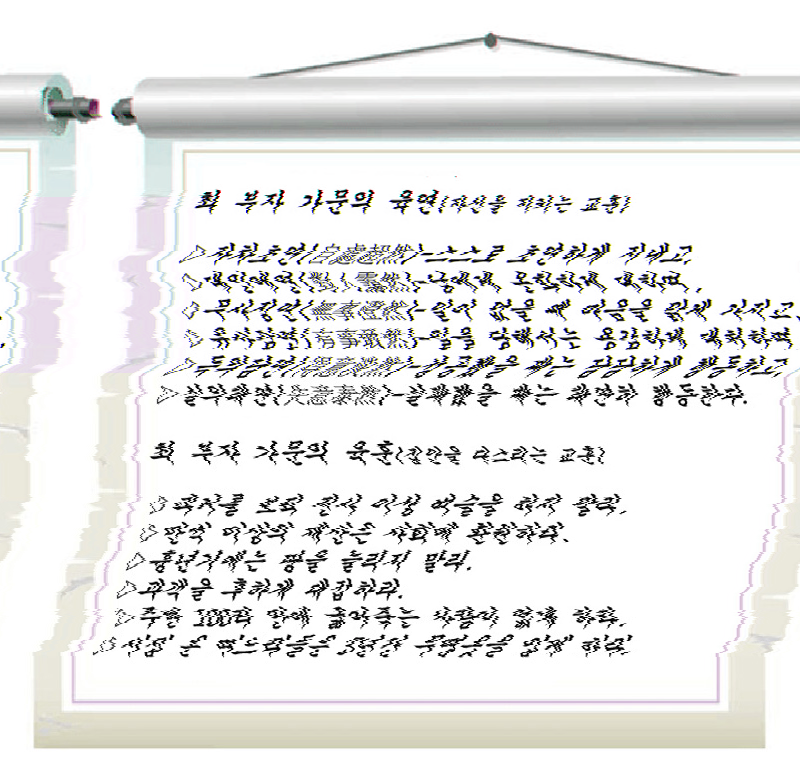 최 부자 가문의 육연(자신을 지키는 교훈)
▷자처초연(自處超然)-스스로 초연하게 지내고,
▷대인애연(對人靄然)-남에게 온화하게 대하며,
▷무사징연(無事澄然)-일이 없을 때 마음을 맑게 가지고,
▷유사감연(有事敢然)-일을 당해서는 용감하게 대처하며
▷득의담연(得意淡然)-성공했을 때는 담담하게 행동하고,
▷실의태연(失意泰然)-실패했을 때는 태연히 행동한다.
최 부자 가문의 육훈(집안을 다스리는 교훈)
▷과거를 보되 진사 이상 벼슬을 하지 말라.
▷만석 이상의 재산은 사회에 환원하라.
▷흉년기에는 땅을 늘리지 말라.
▷과객을 후하게 대접하라.
▷주변 100리 안에 굶어죽는 사람이 없게 하라.
▷시집 온 며느리들은 3년간 무명옷을 입게 하라